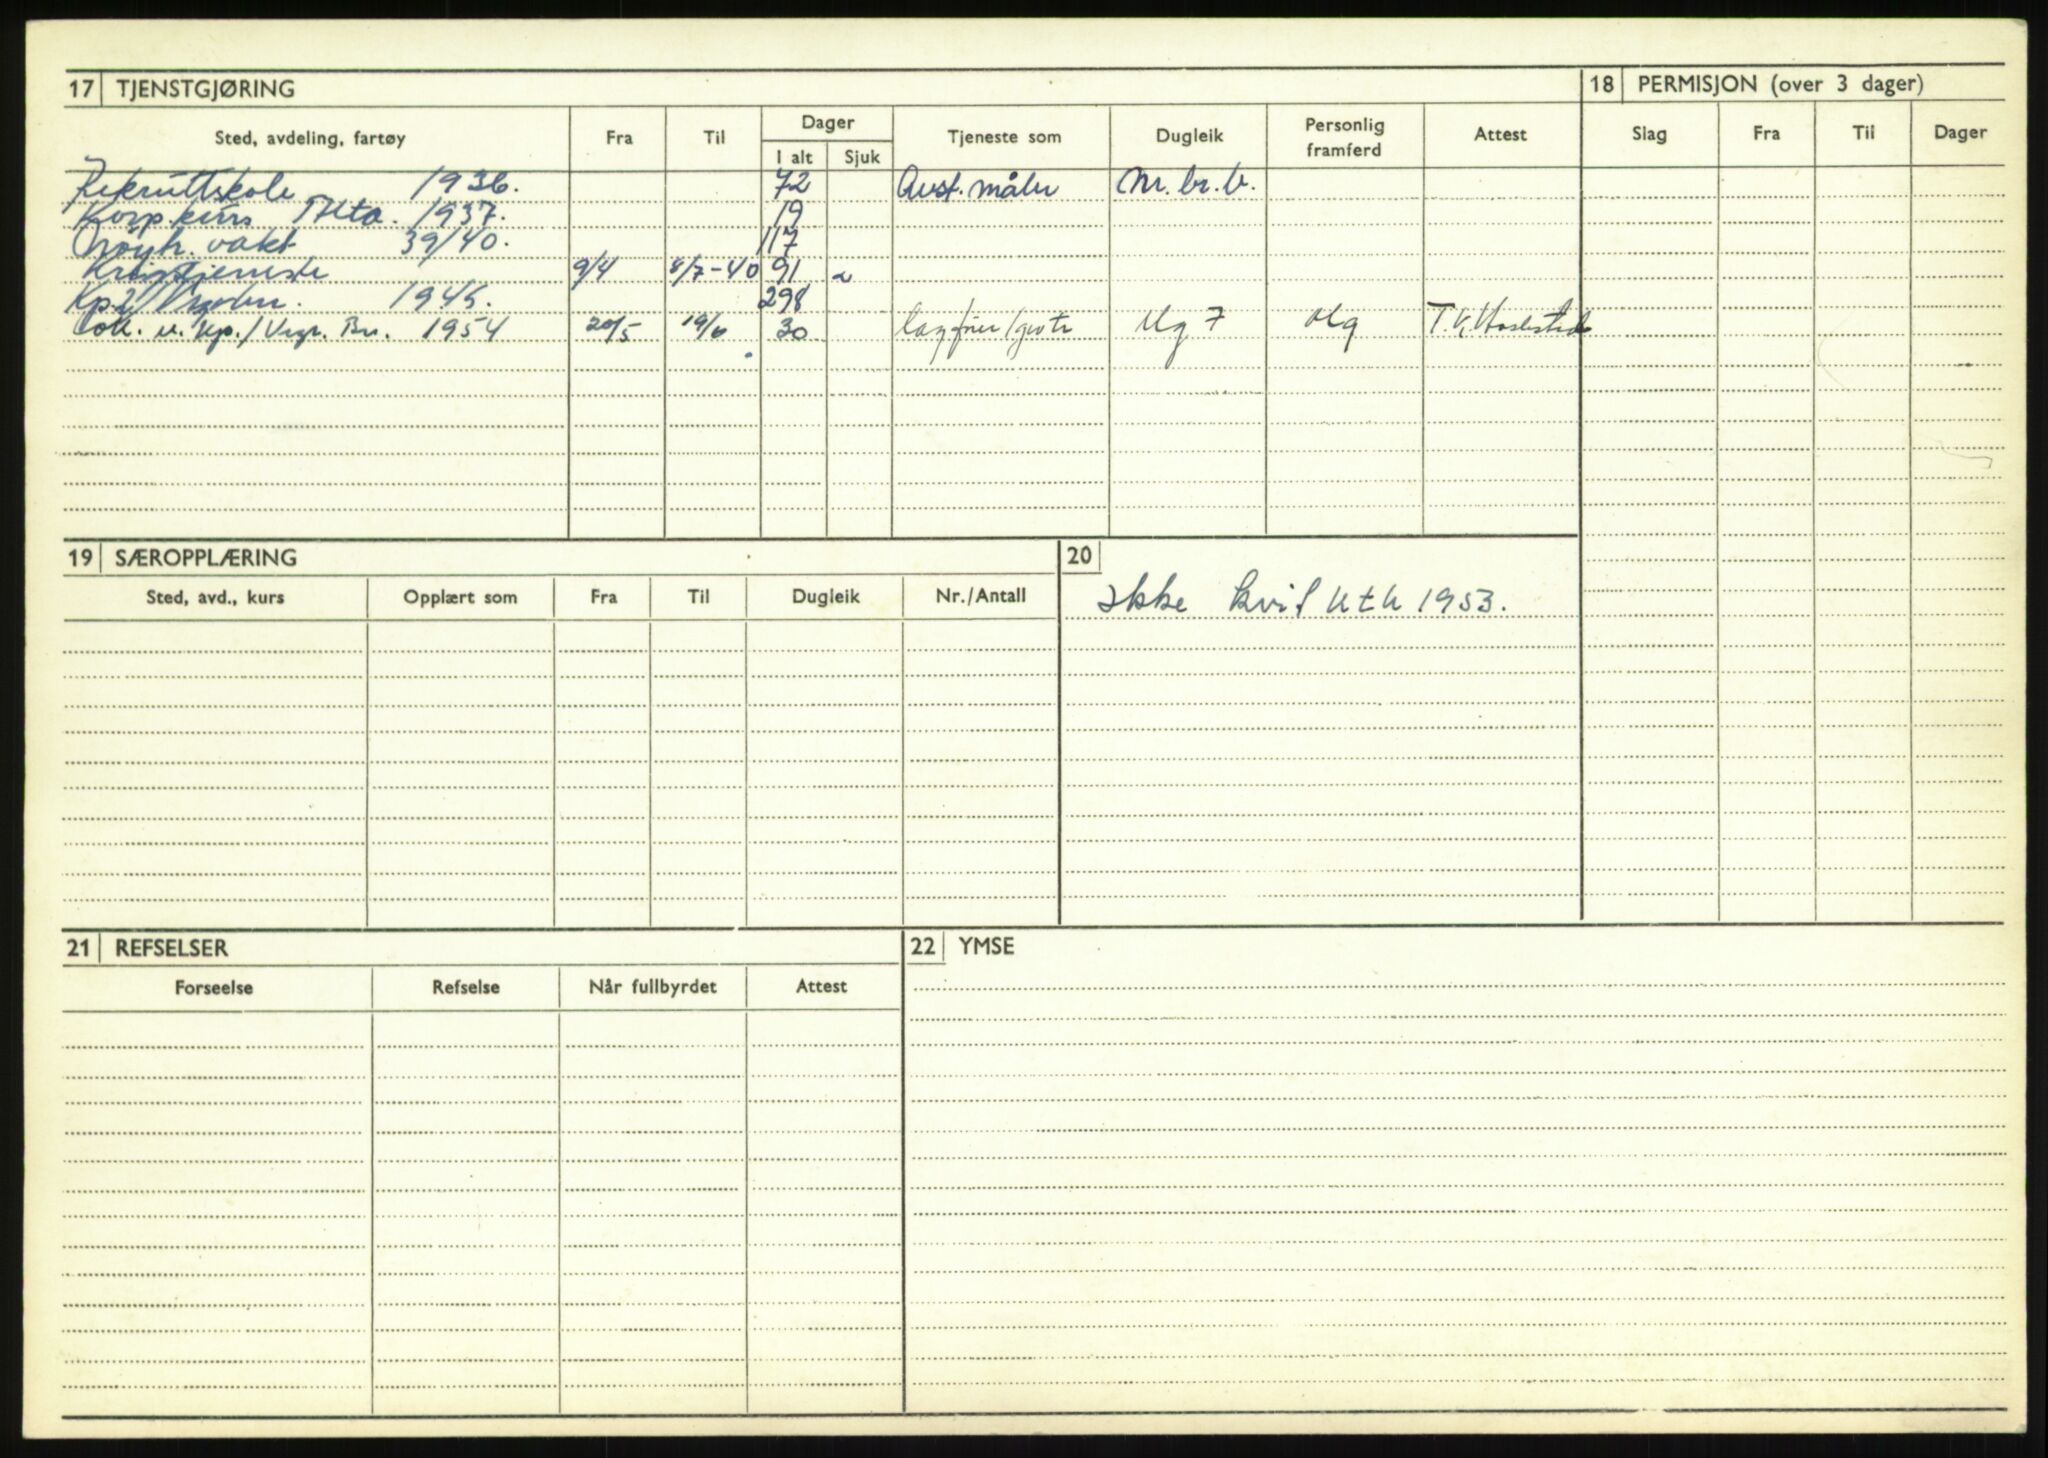 17 TJENSTGJØRING
18 PERMISJON (over 3 dager)
Sted, avdeling, fartøy Fra Til Dager I alt Sjuk Tjeneste som Dugleik Personlig framferd Attest Slag Fra Til Dager
Rekruttskole 1936. 72 Avst. måler Nr. br. b.
Korp.kurs Alta. 1937. 19
Nøytr. vakt 39/40. 117
Krigstjeneste 9/4 8/7-40 91
Kp. 2/ 1945. 298
Kp./ Br. 1954 20/5 19/6 30 lagfører/ Mg 7 Mg
19 SÆROPPLÆRING
20
Sted, avd., kurs Opplært som Fra Til Dugleik Nr./Antall
Ikke 1953.
21 REFSELSER
22 YMSE
Forseelse Refselse Når fullbyrdet Attest